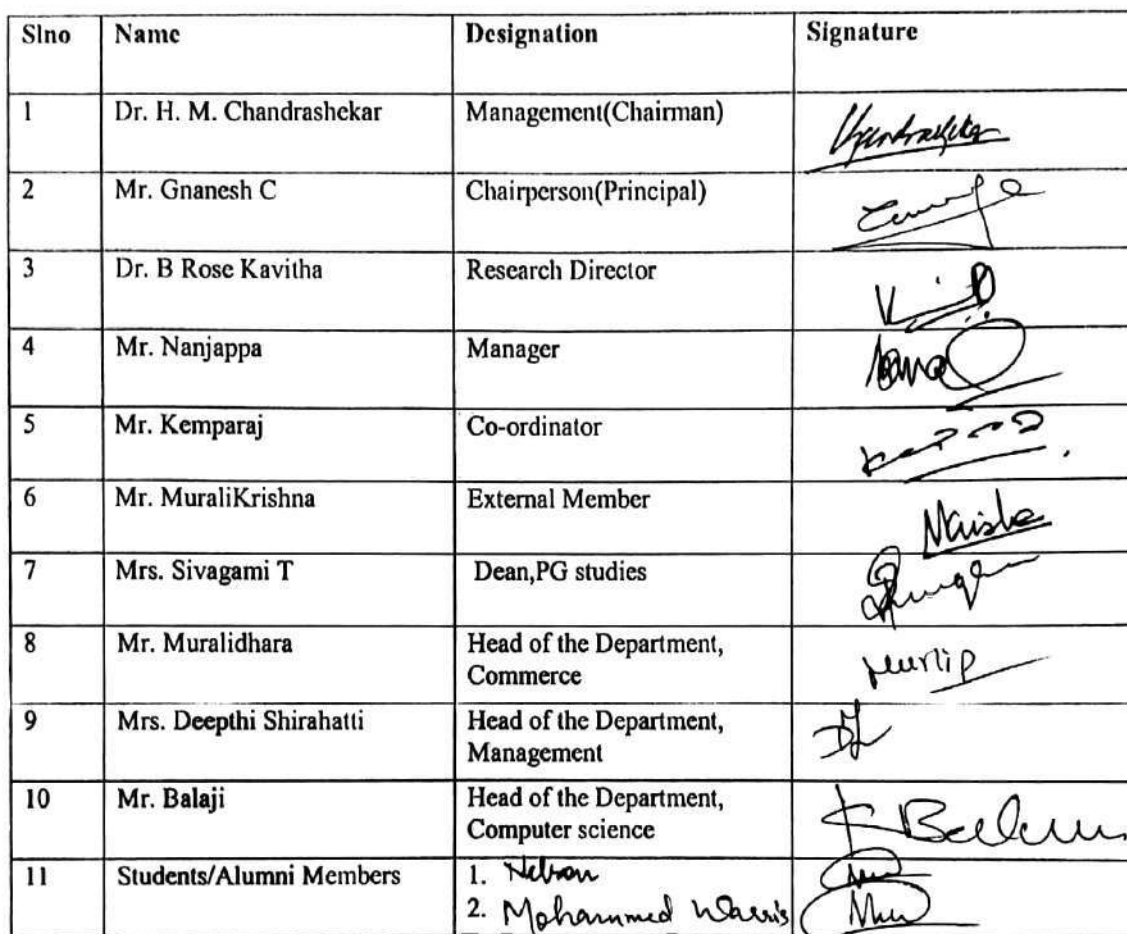 Slno Name Designation Signature
1 Dr. H. M. Chandrashekar Management(Chairman)
2 Mr. Gnanesh C Chairperson(Principal)
3 Dr. B Rose Kavitha Research Director
4 Mr. Nanjappa Manager
5 Mr. Kemparaj Co-ordinator
6 Mr. MuraliKrishna External Member
7 Mrs. Sivagami T Dean,PG studies
8 Mr. Muralidhara Head of the Department,
Commerce
9 Mrs. Deepthi Shirahatti Head of the Department,
Management
10 Mr. Balaji Head of the Department,
Computer science
11 Students/Alumni Members 1. Nelson
2. Mohammed Warris